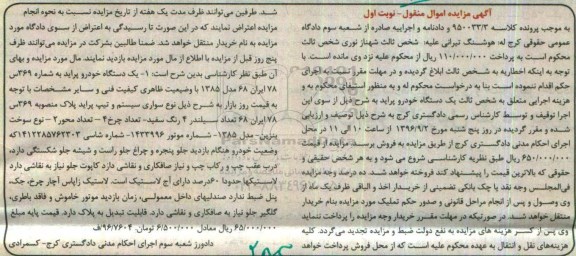 آگهی مزایده اموال منقول- نوبت اول
به موجب پرونده کلاسه ۹۵۰۰۳۳/۳ و دادنامه و اجراییه صادره از شعبه سوم دادگاه
عمومی حقوقی کرج له: هوشنگ تیرانی علیه: شخص ثالث شهناز نوری شخص ثالث
محکوم است به پرداخت ۱۱۰/۰۰۰/۰۰۰ ریال از محکوم علیه نزد وی مانده است. با
توجه به اینکه اخطاریه به شخص ثالث ابلاغ گردیده و در مهلت مقرر نسبت به اجرای
حکم اقدام ننموده است: بنا به درخواست محکوم له و به منظور استیفای محکوم به و
هزینه اجرایی متعلق به شخص ثالث یک دستگاه خودرو پراید به شرح ذیل از سوی این
اجرا توقیف و توسط کارشناس رسمی دادگستری کرج به شرح ذیل توصیف و ارزیابی
شده و مقرر گردیده در روز پنج شنبه مورخ ۱۳۹۶/۹/۲ از ساعت ۱۰ الی ۱۱ در محل
اجرای احکام مدنی دادگستری کرج از طریق مزایده به فروش برسد. مزایده از قیمت
۶۵۰/۰۰۰/۰۰۰ ریال طبق نظریه کارشناسی شروع می شود و به هر شخص حقیقی و
حقوقی که بالاترین قیمت را پیشنهاد کند فروخته خواهد شد. ده درصد وجه مزایده
فی‌المجلس وجه نقد یا چک بانکی تضمینی از خریدار اخذ و الباقی ظرف یک ماه از
وی وصول و پس از انجام مراحل قانونی و صدور حکم تملیک مورد مزایده بنام خریدار
منتقل خواهد شد. در صورتیکه در مهلت مقرر خریدار وجه مزایده را پرداخت ننماید
وی پس از کسر هزینه های مزایده به نفع دولت ضبط و مزایده تجدید می‌گردد. کلیه
هزینه‌های نقل و انتقال به عهده محکوم علیه است که از محل فروش پرداخت خواهد
شد. طرفین می‌توانند ظرف مدت یک هفته از تاریخ مزایده نسبت به نحوه انجام
مزایده اعتراض نمایند که در این صورت تا رسیدگی به اعتراض از سوی دادگاه مورد
مزایده به نام خریدار منتقل خواهد شد. ضمنا طالبین شرکت در مزایده می‌توانند ظرف
پنج روز قبل از مزایده با اطلاع از مال مورد مزایده بازدید نمایند. مال مورد مزایده و بهای
آن طبق نظر کارشناسی بدین شرح است: ۱- یک دستگاه خودرو پراید به شماره ۳۶۹س
۷۸ ایران ۶۸ مدل ۱۳۸۵ با وضعیت ظاهری کیفیت فنی و سایر مشخصات با توجه
به قیمت روز بازار به شرح ذیل نوع سواری سیستم و تیپ پراید پلاک منصوبه ۳۶۹س
۷۸ ایران ۶۸ تعداد سیلندر ۴ رنگ سفید- تعداد چرخ۴ – تعداد محور۲ – نوع سوخت
بنزین- مدل ۱۳۸۵- شماره موتور ۱۴۳۳۹۹۶- شماره شاسی ۱۴۱۲۲۸۵۷۶۲۳۰۳که
وضعیت خودرو هنگام بازدید جلو پنجره و چراغ جلو راست و شیشه جلو شکستگی دارد.
درب عقب چپ و رکاب چپ و نیاز صافکاری و نقاشی دارد کاپوت جلو نیاز به نقاشی دارد
لاستیکها حدودا ۶۰درصد دارای آج لاستیک است. لاستیک زاپاس آچار چرخ، جک،
پنل ضبط ندارد صندلیهای داخل معمولی، زمان بازدید موتور خاموش و فاقد باطری،
گلگیر جلو نیاز به صافکاری و نقاشی دارد. قابلیت تبدیل به پلاک دارد. قیمت پایه مبلغ
۶۵/۰۰۰/۰۰۰ ریال معادل ۶/۵۰۰/۰۰۰ تومان. ۹۶/۷۶۰۴/ف
دادورز شعبه سوم اجرای احکام مدنی دادگستری کرج- کسمرادی